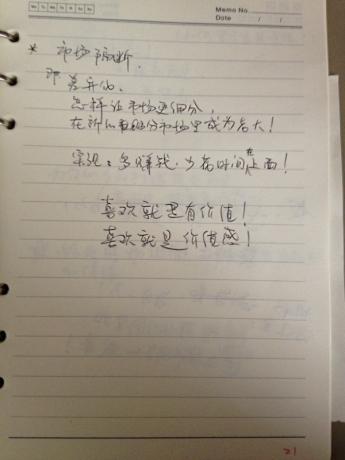 Memo No.
Date / /
* 市场隔断.
即差异化.
怎样让市场更细分,
在所以更细分市场里成为老大!
实现: 多赚钱, 少花时间在上面!
喜欢就是有价值!
喜欢就是价值感!
21